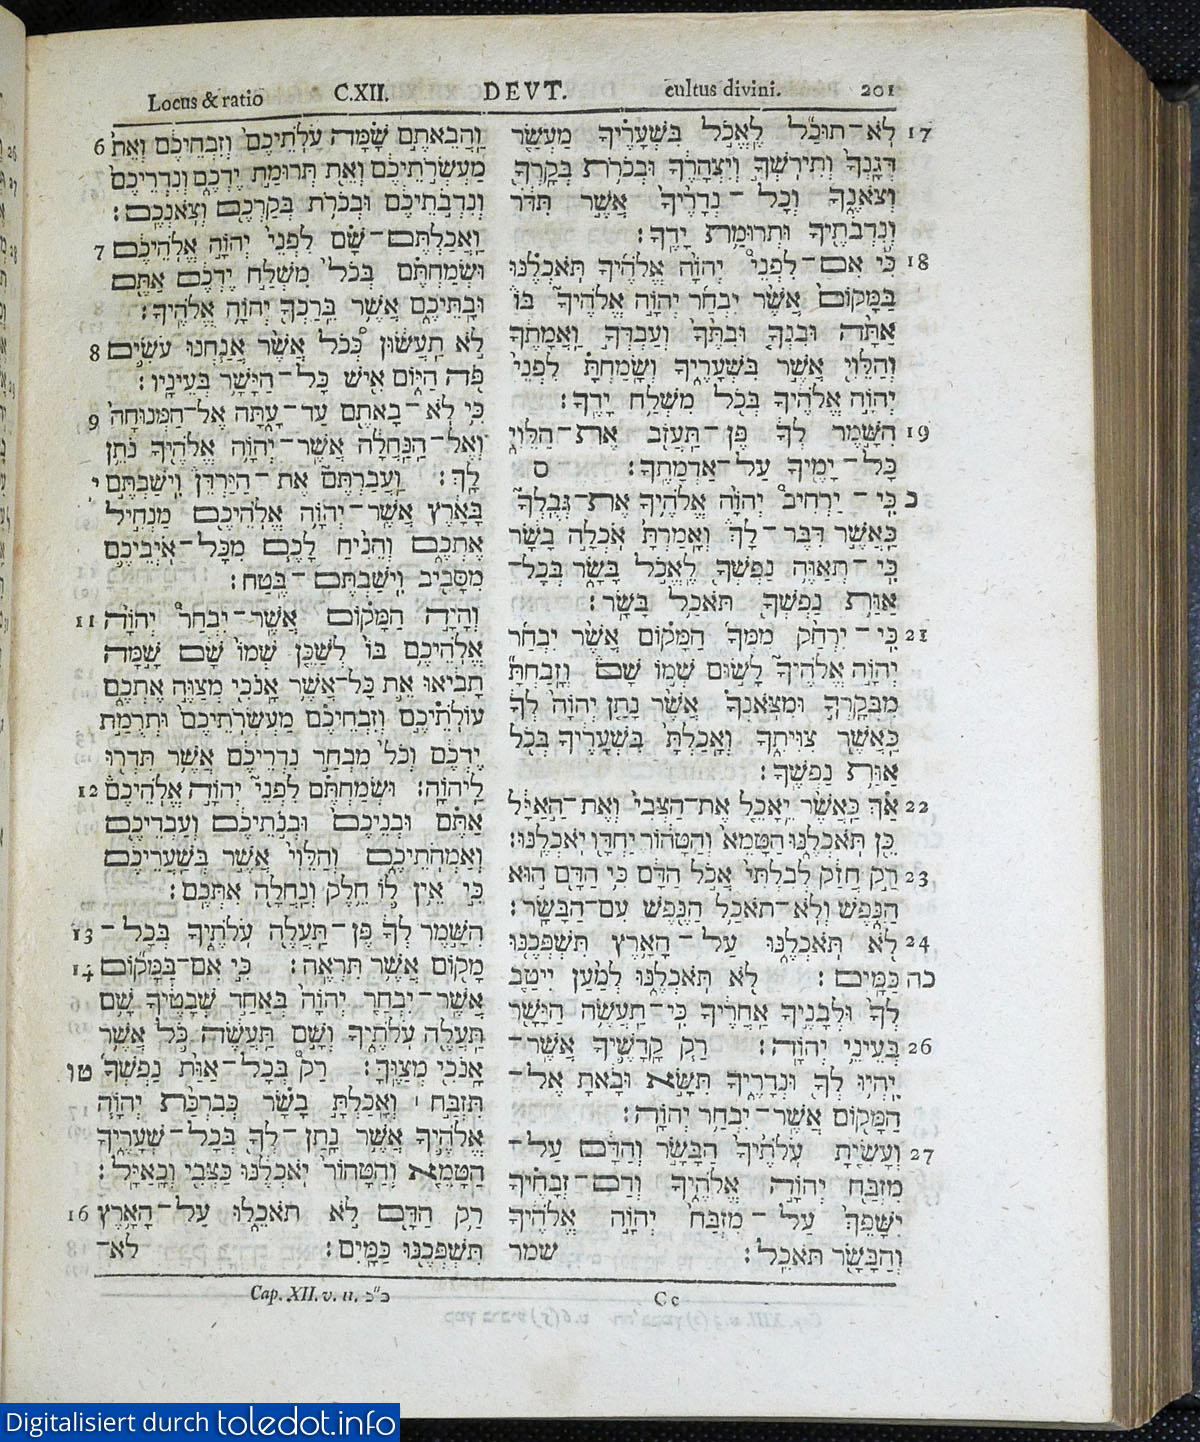 Locus & ratio C.XII. DEVT. cultus divini. 201
6 וַהֲבֵאתֶם שָׁמָּה עֹלֹתֵיכֶם וְזִבְחֵיכֶם וְאֵת
מַעְשְׂרֹתֵיכֶם וְאֵת תְּרוּמַת יֶדְכֶם וְנִדְרֵיכֶם
וְנִדְבֹתֵיכֶם וּבְכֹרֹת בְּקַרְכֶם וְצֹאנְכֶם׃
7 וַאֲכַלְתֶּם־שָׁם לִפְנֵי יְהוָה אֱלֹהֵיכֶם
וּשְׂמַחְתֶּם בְּכֹל מִשְׁלַח יֶדְכֶם אַתֶּם
וּבָתֵּיכֶם אֲשֶׁר בֵּרַכְךָ יְהוָה אֱלֹהֶיךָ׃
8 לֹא תַעֲשׂוּן כְּכֹל אֲשֶׁר אֲנַחְנוּ עֹשִׂים
פֹּה הַיּוֹם אִישׁ כָּל־הַיָּשָׁר בְּעֵינָיו׃
9 כִּי לֹא־בָאתֶם עַד־עָתָּה אֶל־הַמְּנוּחָה
וְאֶל־הַנַּחֲלָה אֲשֶׁר־יְהוָה אֱלֹהֶיךָ נֹתֵן
י לָךְ׃ וַעֲבַרְתֶּם אֶת־הַיַּרְדֵּן וִישַׁבְתֶּם
בָּאָרֶץ אֲשֶׁר־יְהוָה אֱלֹהֵיכֶם מַנְחִיל
אֶתְכֶם וְהֵנִיחַ לָכֶם מִכָּל־אֹיְבֵיכֶם
מִסָּבִיב וִישַׁבְתֶּם־בֶּטַח׃
11 וְהָיָה הַמָּקוֹם אֲשֶׁר־יִבְחַר יְהוָה
אֱלֹהֵיכֶם בּוֹ לְשַׁכֵּן שְׁמוֹ שָׁם שָׁמָּה
תָבִיאוּ אֵת כָּל־אֲשֶׁר אָנֹכִי מְצַוֶּה אֶתְכֶם
עוֹלֹתֵיכֶם וְזִבְחֵיכֶם מַעְשְׂרֹתֵיכֶם וּתְרֻמַת
יֶדְכֶם וְכֹל מִבְחַר נִדְרֵיכֶם אֲשֶׁר תִּדְּרוּ
12 לַיהוָה׃ וּשְׂמַחְתֶּם לִפְנֵי יְהוָה אֱלֹהֵיכֶם
אַתֶּם וּבְנֵיכֶם וּבְנֹתֵיכֶם וְעַבְדֵיכֶם
וְאַמְהֹתֵיכֶם וְהַלֵּוִי אֲשֶׁר בְּשַׁעֲרֵיכֶם
כִּי אֵין לוֹ חֵלֶק וְנַחֲלָה אִתְּכֶם׃
13 הִשָּׁמֶר לְךָ פֶּן־תַּעֲלֶה עֹלֹתֶיךָ בְּכָל־
14 מָקוֹם אֲשֶׁר תִּרְאֶה׃ כִּי אִם־בַּמָּקוֹם
אֲשֶׁר־יִבְחַר יְהוָה בְּאַחַד שְׁבָטֶיךָ שָׁם
תַּעֲלֶה עֹלֹתֶיךָ וְשָׁם תַּעֲשֶׂה כֹּל אֲשֶׁר
טו אָנֹכִי מְצַוֶּךָּ׃ רַק בְּכָל־אַוַּת נַפְשְׁךָ
תִּזְבַּח ׀ וְאָכַלְתָּ בָשָׂר כְּבִרְכַּת יְהוָה
אֱלֹהֶיךָ אֲשֶׁר נָתַן־לְךָ בְּכָל־שְׁעָרֶיךָ
הַטָּמֵא וְהַטָּהוֹר יֹאכְלֶנּוּ כַּצְּבִי וְכָאַיָּל׃
16 רַק הַדָּם לֹא תֹאכֵלוּ עַל־הָאָרֶץ
תִּשְׁפְּכֶנּוּ כַּמָּיִם׃ לֹא־
17 לֹא־תוּכַל לֶאֱכֹל בִּשְׁעָרֶיךָ מַעְשַׂר
דְּגָנְךָ וְתִירֹשְׁךָ וְיִצְהָרֶךָ וּבְכֹרֹת בְּקָרְךָ
וְצֹאנֶךָ וְכָל־נְדָרֶיךָ אֲשֶׁר תִּדֹּר
וְנִדְבֹתֶיךָ וּתְרוּמַת יָדֶךָ׃
18 כִּי אִם־לִפְנֵי יְהוָה אֱלֹהֶיךָ תֹּאכְלֶנּוּ
בַּמָּקוֹם אֲשֶׁר יִבְחַר יְהוָה אֱלֹהֶיךָ בּוֹ
אַתָּה וּבִנְךָ וּבִתֶּךָ וְעַבְדְּךָ וַאֲמָתֶךָ
וְהַלֵּוִי אֲשֶׁר בִּשְׁעָרֶיךָ וְשָׂמַחְתָּ לִפְנֵי
יְהוָה אֱלֹהֶיךָ בְּכֹל מִשְׁלַח יָדֶךָ׃
19 הִשָּׁמֶר לְךָ פֶּן־תַּעֲזֹב אֶת־הַלֵּוִי
כָּל־יָמֶיךָ עַל־אַדְמָתֶךָ׃ ס
כ כִּי־יַרְחִיב יְהוָה אֱלֹהֶיךָ אֶת־גְּבֻלְךָ
כַּאֲשֶׁר דִּבֶּר־לָךְ וְאָמַרְתָּ אֹכְלָה בָשָׂר
כִּי־תְאַוֶּה נַפְשְׁךָ לֶאֱכֹל בָּשָׂר בְּכָל־
אַוַּת נַפְשְׁךָ תֹּאכַל בָּשָׂר׃
21 כִּי־יִרְחַק מִמְּךָ הַמָּקוֹם אֲשֶׁר יִבְחַר
יְהוָה אֱלֹהֶיךָ לָשׂוּם שְׁמוֹ שָׁם וְזָבַחְתָּ
מִבְּקָרְךָ וּמִצֹּאנְךָ אֲשֶׁר נָתַן יְהוָה לְךָ
כַּאֲשֶׁר צִוִּיתִךָ וְאָכַלְתָּ בִּשְׁעָרֶיךָ בְּכֹל
אַוַּת נַפְשֶׁךָ׃
22 אַךְ כַּאֲשֶׁר יֵאָכֵל אֶת־הַצְּבִי וְאֶת־הָאַיָּל
כֵּן תֹּאכְלֶנּוּ הַטָּמֵא וְהַטָּהוֹר יַחְדָּו יֹאכְלֶנּוּ׃
23 רַק חֲזַק לְבִלְתִּי אֲכֹל הַדָּם כִּי הַדָּם הוּא
הַנָּפֶשׁ וְלֹא־תֹאכַל הַנֶּפֶשׁ עִם־הַבָּשָׂר׃
24 לֹא תֹּאכְלֶנּוּ עַל־הָאָרֶץ תִּשְׁפְּכֶנּוּ
כה כַּמָּיִם׃ לֹא תֹּאכְלֶנּוּ לְמַעַן יִיטַב
לְךָ וּלְבָנֶיךָ אַחֲרֶיךָ כִּי־תַעֲשֶׂה הַיָּשָׁר
26 בְּעֵינֵי יְהוָה׃ רַק קָדָשֶׁיךָ אֲשֶׁר־
יִהְיוּ לְךָ וּנְדָרֶיךָ תִּשָּׂא וּבָאתָ אֶל־
הַמָּקוֹם אֲשֶׁר־יִבְחַר יְהוָה׃
27 וְעָשִׂיתָ עֹלֹתֶיךָ הַבָּשָׂר וְהַדָּם עַל־
מִזְבַּח יְהוָה אֱלֹהֶיךָ וְדַם־זְבָחֶיךָ
יִשָּׁפֵךְ עַל־מִזְבַּח יְהוָה אֱלֹהֶיךָ
וְהַבָּשָׂר תֹּאכֵל׃ שמר
Cap. XII. v. 11. כ״כ
Cc
Digitalisiert durch toledot.info